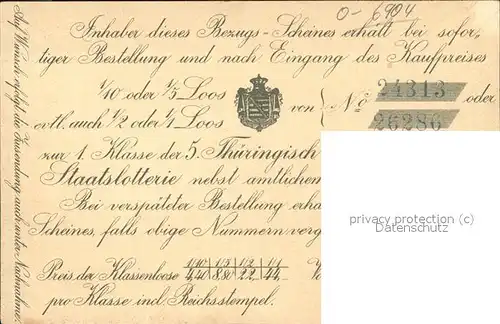 0-6904
Inhaber dieses Bezugs-Scheines erhält bei sofor,
tiger Bestellung und nach Eingang des Kaufpreises
1/10 oder 1/5 Loos
von No 24313 oder
evtl. auch 1/2 oder 1/1 Loos
26286
zur 1. Klasse der 5. Thüringisch
Staatslotterie nebst amtlichem
Bei verspäteter Bestellung erha
Scheines, falls obige Nummern verg
Preis der Klassenloose 1/10 1/5 1/2 1/1
4,40 8,80 22,- 44,-
pro Klasse incl. Reichsstempel.
Auf Wunsch erfolgt die Zusendung auch unter Nachnahme.
privacy protection (c)